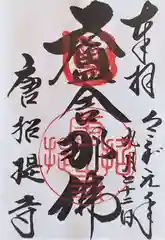 奉拝
令和元年
九月二十二日
盧舎那佛
唐招提寺